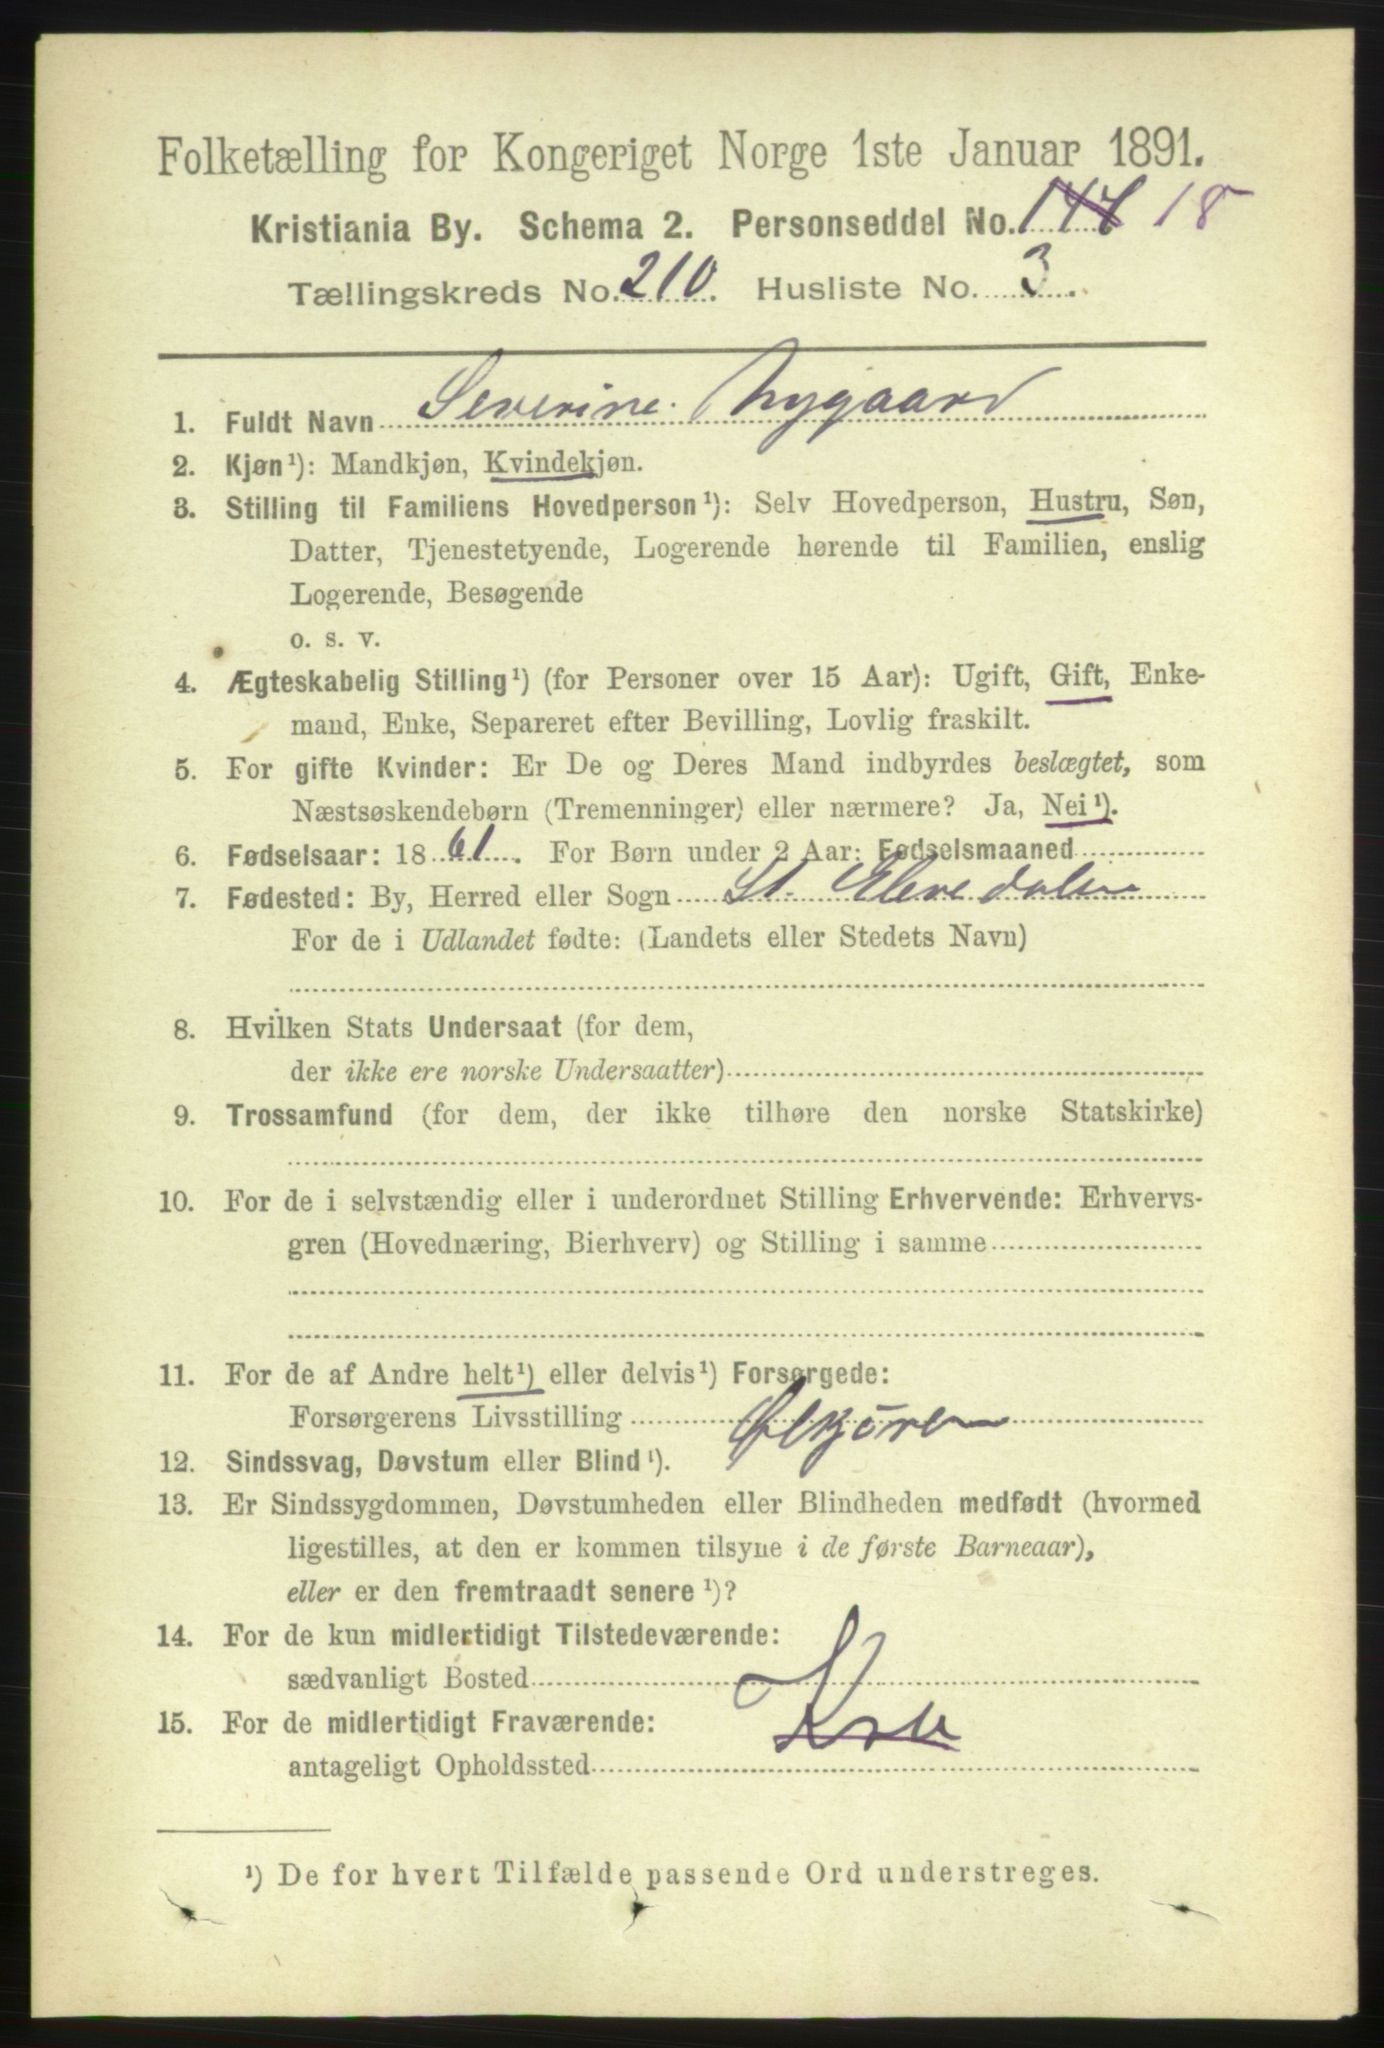 Folketælling for Kongeriget Norge 1ste Januar 1891.
Kristiania By. Schema 2. Personseddel No. 144 18
Tællingskreds No. 210. Husliste No. 3.
1. Fuldt Navn Severine Nygaard
2. Kjøn¹): Mandkjøn, Kvindekjøn.
3. Stilling til Familiens Hovedperson¹): Selv Hovedperson, Hustru, Søn,
Datter, Tjenestetyende, Logerende hørende til Familien, enslig
Logerende, Besøgende
o. s. v.
4. Ægteskabelig Stilling¹) (for Personer over 15 Aar): Ugift, Gift, Enke-
mand, Enke, Separeret efter Bevilling, Lovlig fraskilt.
5. For gifte Kvinder: Er De og Deres Mand indbyrdes beslægtet, som
Næstsøskendebørn (Tremenninger) eller nærmere? Ja, Nei¹).
6. Fødselsaar: 1861. For Børn under 2 Aar: Fødselsmaaned
7. Fødested: By, Herred eller Sogn St. Elvedalen
For de i Udlandet fødte: (Landets eller Stedets Navn)
8. Hvilken Stats Undersaat (for dem,
der ikke ere norske Undersaatter)
9. Trossamfund (for dem, der ikke tilhøre den norske Statskirke)
10. For de i selvstændig eller i underordnet Stilling Erhvervende: Erhvervs-
gren (Hovednæring, Bierhverv) og Stilling i samme
11. For de af Andre helt¹) eller delvis¹) Forsørgede:
Forsørgerens Livsstilling Ølkjører
12. Sindssvag, Døvstum eller Blind¹).
13. Er Sindssygdommen, Døvstumheden eller Blindheden medfødt (hvormed
ligestilles, at den er kommen tilsyne i de første Barneaar),
eller er den fremtraadt senere¹)?
14. For de kun midlertidigt Tilstedeværende:
sædvanligt Bosted
15. For de midlertidigt Fraværende:
antageligt Opholdssted
¹) De for hvert Tilfælde passende Ord understreges.